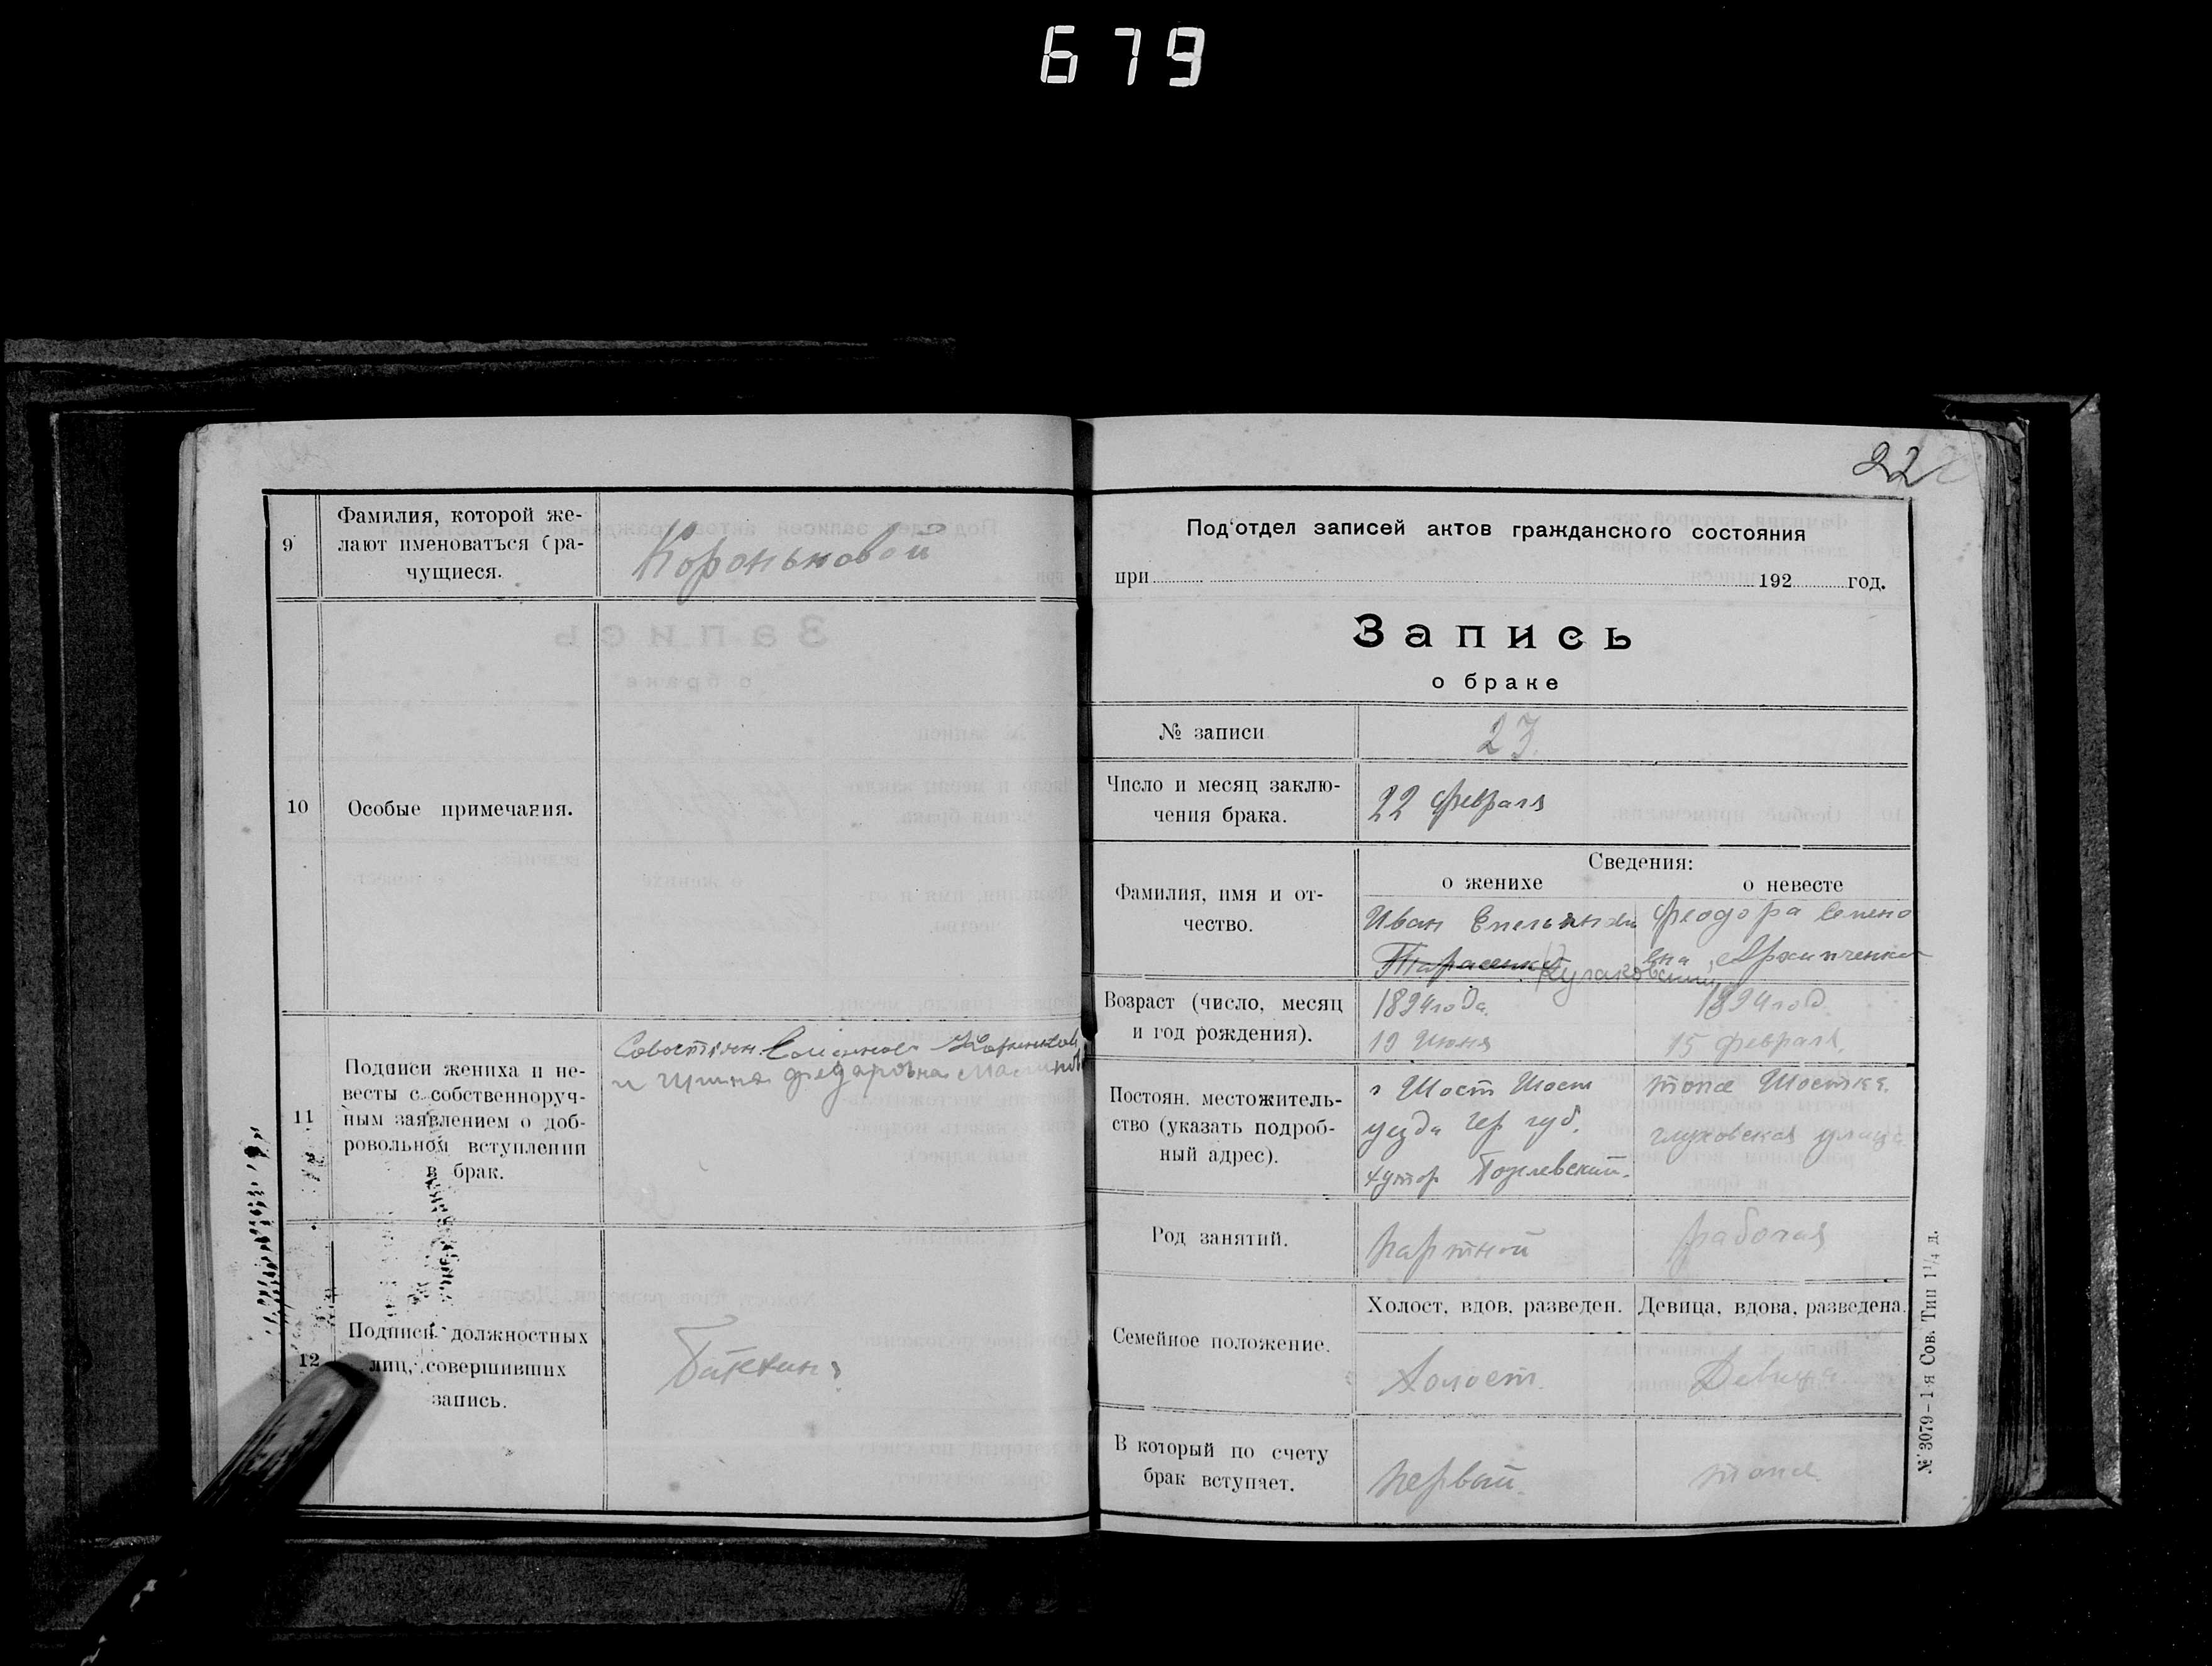 679
9
Фамилия, которой же-
лают именоваться бра-
чущиеся.
Короньковой
10
Особые примечания.
11
Подписи жениха и не-
весты с собственноруч-
ным заявлением о доб-
ровольном вступлении
в брак.
и
12
Подписи должностных
лиц, совершивших
запись.
22
Под'отдел записей актов гражданского состояния
при 192 год.
Запись
о браке
№ записи
23.
Число и месяц заклю-
чения брака.
22 февраля
Сведения:
о женихе
о невесте
Фамилия, имя и от-
чество.
Иван
Тарасенко Кулаковский
Феодора Семено
вна Архипченко
Возраст (число, месяц
и год рождения).
1894 года.
19 Июня
1894 год.
15 февраля.
Постоян. местожитель-
ство (указать подроб-
ный адрес).
г Шост Шост
уезда Чер губ.
хутор
тоже Шостка.
глуховская улица
Род занятий.
партной
рабочая
Семейное положение.
Холост, вдов, разведен.
Девица, вдова, разведена.
Холост.
Девица.
В который по счету
брак вступает.
первый.
тоже.
№ 3079–1-я Сов. Тип 1¼ д.